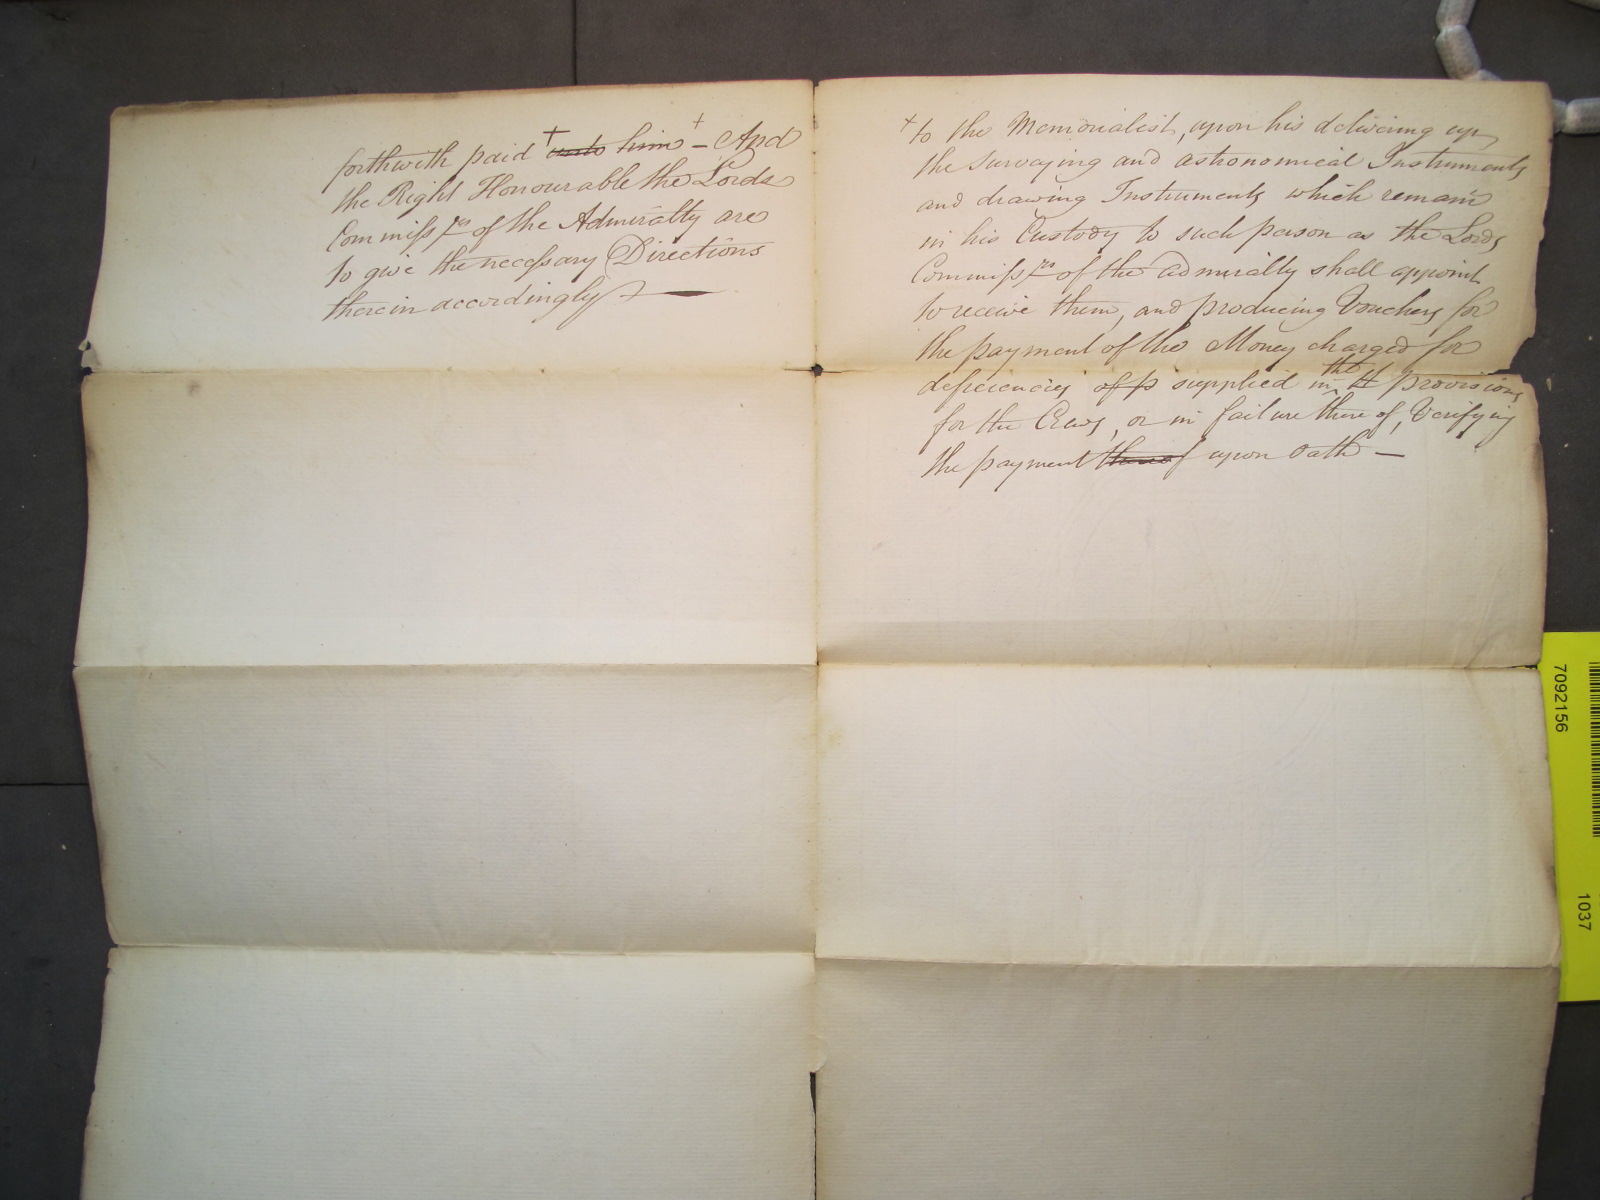 forthwith paid + unto him + – And
the Right Honourable the Lords
Commiss.rs of the Admiralty are
to give the necessary Directions
therein accordingly
+ to the Memorialist, upon his delivering up
the Surveying and astronomical Instruments
and drawing Instruments which remain
in his Custody to such person as the Lords
Commiss.rs of the Admiralty shall appoint
to receive them, and producing Vouchers for
the payment of the Money charged for
deficiencies of p supplied in the provisions
for the Crews, or in failure there of, Verifying
the payment thereof upon Oath –
7092156
1037